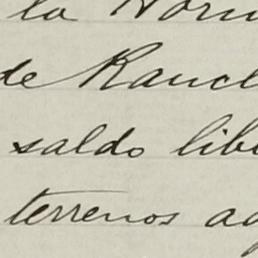 la Norm
de Ranch
saldo libe
terrenos ag